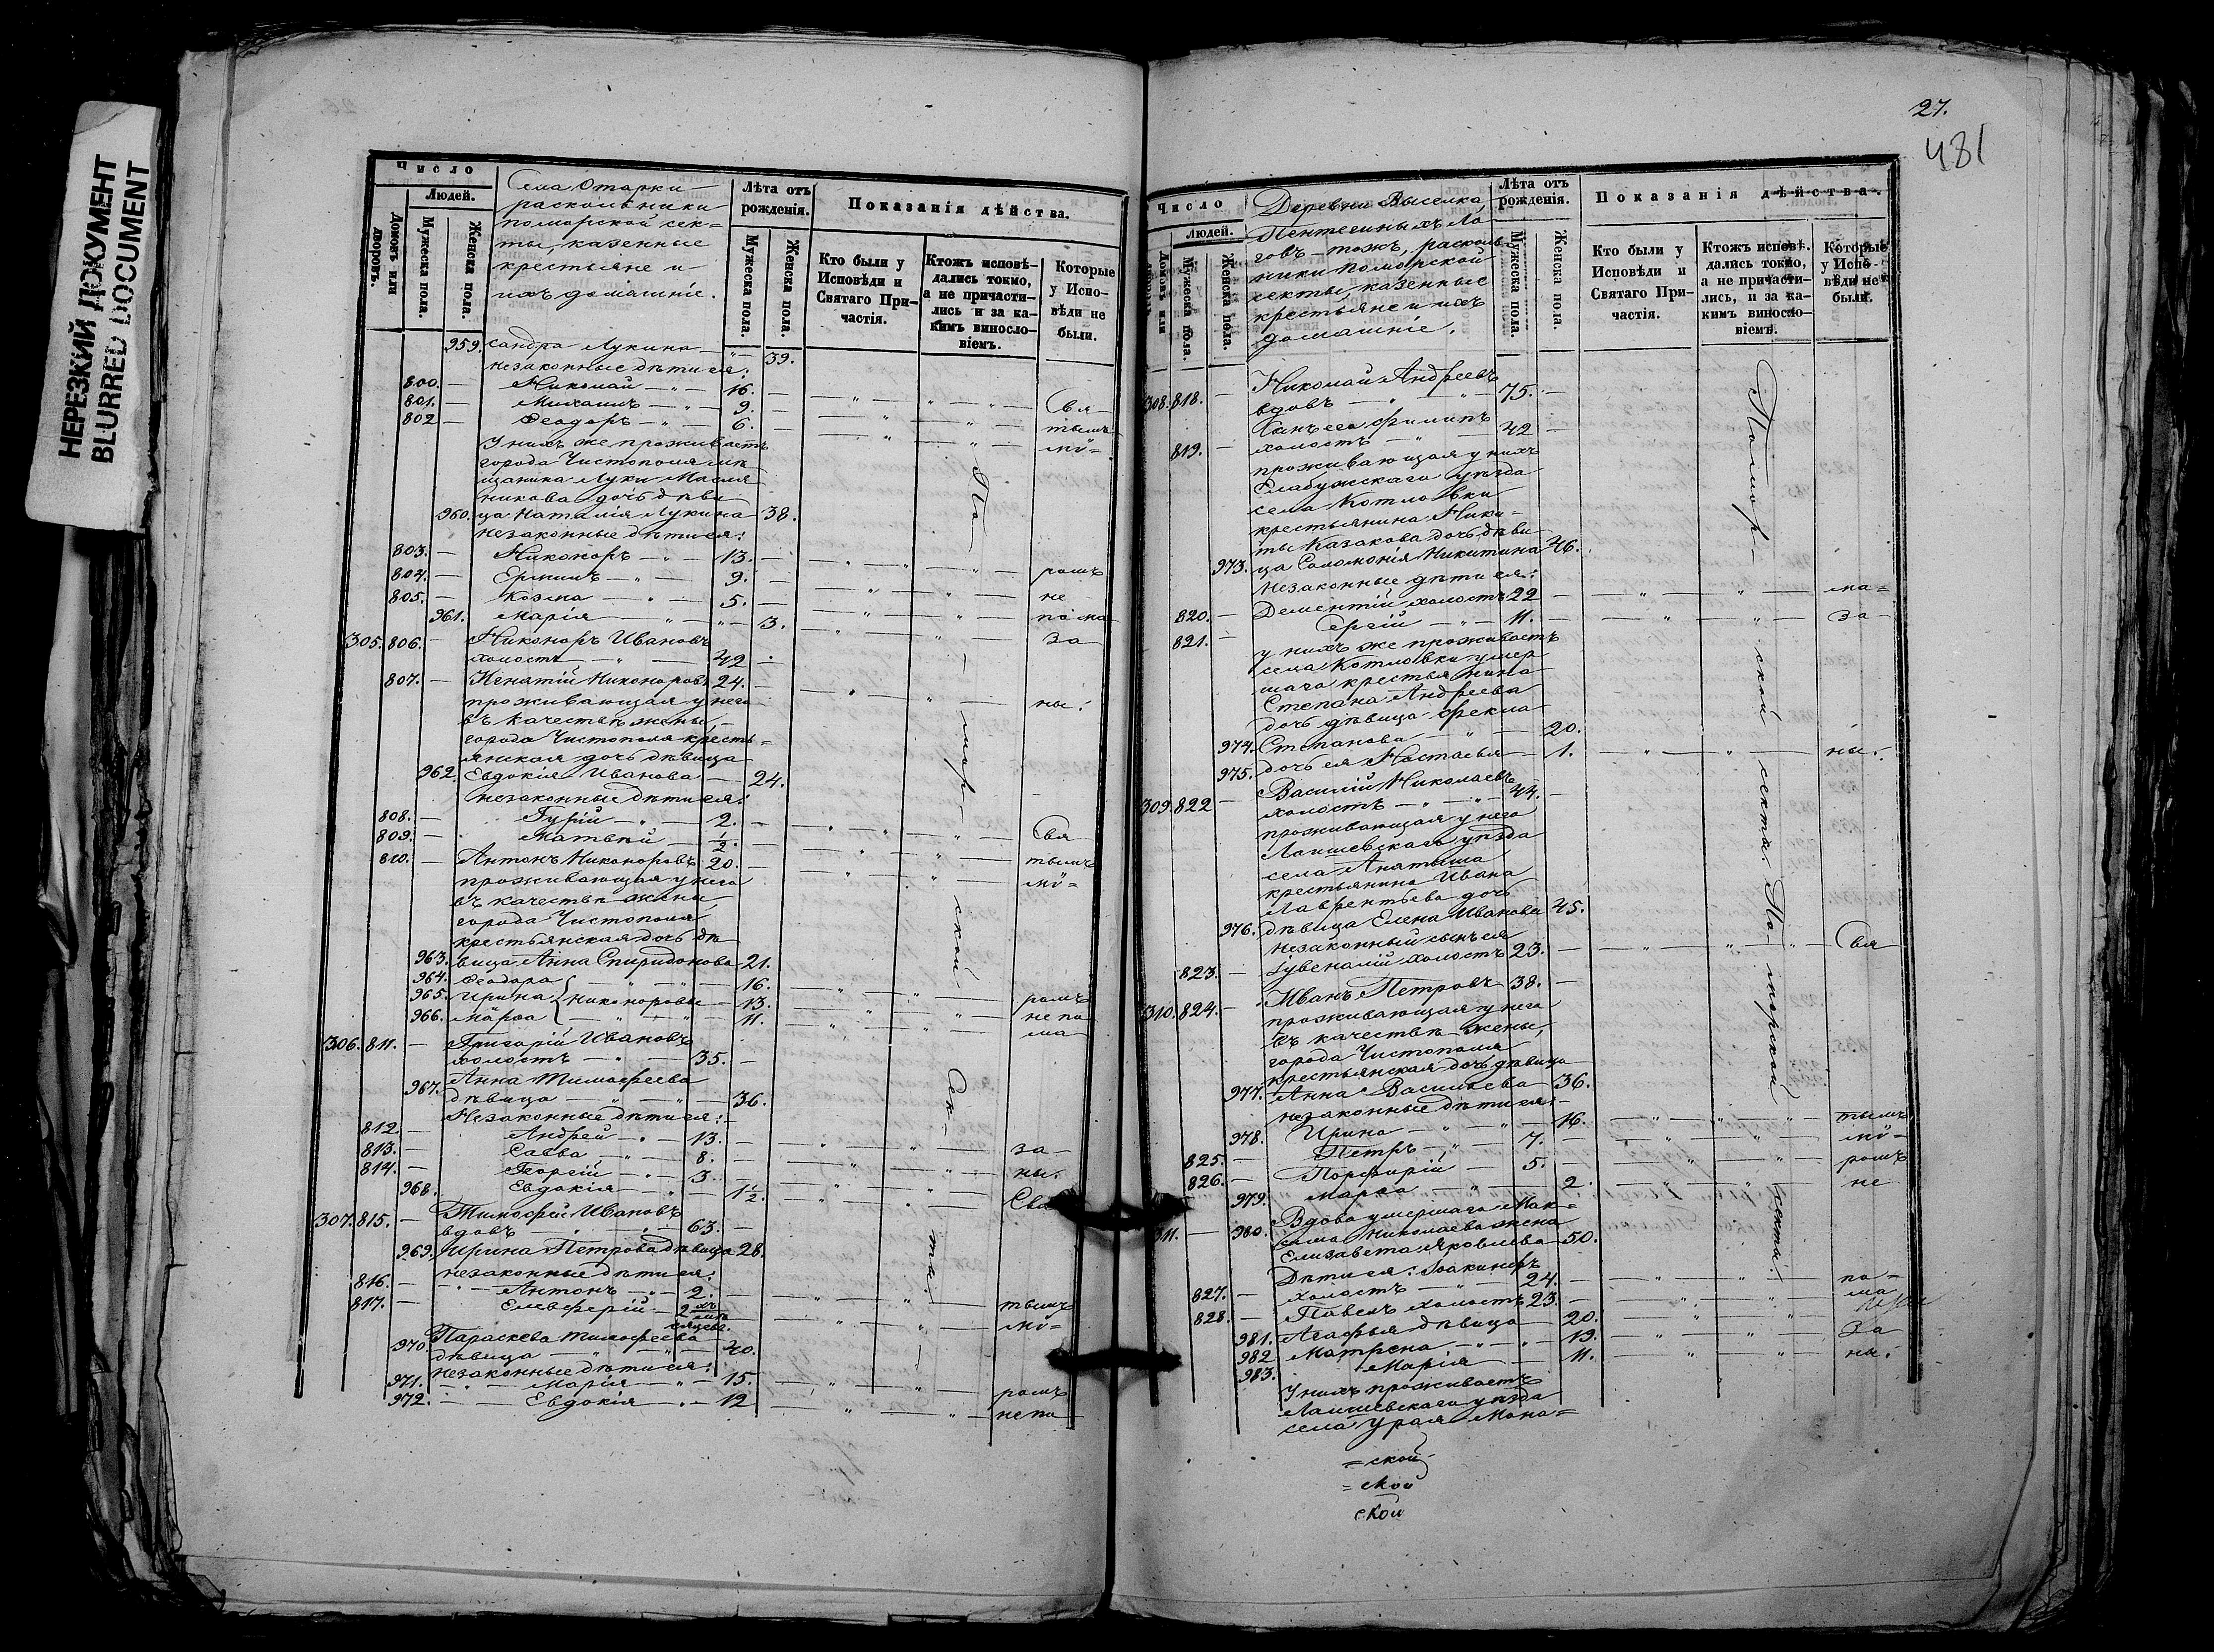 НЕРЕЗКИЙ ДОКУМЕНТ
BLURRED DOCUMENT
Число
Людей.
Домовъ или дворовъ.
Мужеска пола.
Женска пола.
Села Отарки
раскольники
поморской сек=
ты, казенные
крестьяне и
ихъ домашніе.
Лѣта отъ рожденія.
Мужеска пола.
Женска пола.
Показанія дѣйства.
Кто были у Исповѣди и Святаго Причастія.
Ктожъ исповѣдались токмо, а не причастились и за какимъ винословіемъ.
Которые у Исповѣди не были.
959. сандра Лукина — " — 39.
незаконные дѣти ея:
800. — Николай — " — 16. —
801. — Михаилъ — " — 9. — Свя
802 — Ѳеодоръ — " — 6. — тымъ
У нихъ же проживаетъ мѵ=
города Чистополя мѣ
щанина Луки Масля
никова дочь дѣви
960. ца Наталія Лукина 38.
незаконные дѣти ея:
803. — Никоноръ — " — 13. —
804. — Ермилъ — " — 9. — ромъ
805. — Козма — " — 5. — не
961. Марія — " — " — 3. пома
305. 806. — Никоноръ Ивановъ за
холостъ — " — 42 —
807. — Игнатій Никоноровъ 24. —
проживающая у него ны.
въ качествѣ жены,
города Чистополя кресть=
янская дочь дѣвица
962. Евдокія Иванова — 24.
незаконные дѣти ея:
808. — Гурій — " — 2. —
809. — Матвѣй — 1/2. — Свя
810. — Антонъ Никоноровъ 20. — тымъ
проживающая у него мѵ=
въ качествѣ жены,
города Чистополя
крестьянская дочь дѣ
963. вица Анна Спиридонова 21.
964. Ѳеодора — " — " — 16.
965. Ирина } Никоноровы — 13. ромъ
966. Марѳа — " — " 11. не по
306. 811. — Григорій Ивановъ ма
холостъ — " — 35. —
967. Анна Тимоѳеева
дѣвица — " — " — 36.
Незаконные дѣти ея:
812 — Андрей — " — 13. —
813. — Савва — " — 8. — за
814. — Георгій — " — 3. — ны.
968. Евдокія — " — 1 1/2. Свя
307. 815. — Тимоѳей Ивановъ
вдовъ — " — " — 63. —
969. Ирина Петрова дѣвица 28.
незаконные дѣти ея:
816. — Антонъ — " — 2. —
817. — Елевѳерій — 2 хъ мѣсяцевъ. тымъ
970. Параскева Тимоѳеева мѵ=
дѣвица — " — " — 40.
незаконные дѣти ея:
971. — Марія — " — 15. ромъ
972. — Евдокія — " — 12 не по
По — мор — ской Сек — ты.
27.
481
Число
Людей.
Домовъ или
Мужеска пола.
Женска пола.
Деревни Выселка
Пентегиныхъ Ло
говъ — тожъ, расколь
ники поморской
секты, казенные
крестьяне и ихъ
домашніе.
Лѣта отъ рожденія.
Мужеска пола.
Женска пола.
Показанія дѣйства.
Кто были у Исповѣди и Святаго Причастія.
Ктожъ исповѣ. дались токмо, а не причастились, и за какимъ винословіемъ.
Которые у Исповѣди не были.
308. 818. — Николай Андреевъ
вдовъ — " — " — 75. —
Сынъ его Филипъ
819. — холостъ — " — 42 —
проживающая у нихъ
Елабужскаго уѣзда
села Котловки
крестьянина Ники=
ты Казакова дочь дѣви
973. ца Соломонія Никитина 46.
незаконные дѣти ея:
820. — Дементій холостъ 22 — ма=
821. — Сергій — " — 11. — за
у нихъ же проживаетъ
села Котловки умер
шаго крестьянина
Степана Андреева
дочь дѣвица Ѳекла
974. Степанова — " — 20.
975. дочь ея Настасья — 1. ны.
309. 822 — Василій Николаевъ
холостъ — " — " — 44. —
проживающая у него
Лаишевскаго уѣзда
села Анатыша
крестьянина Ивана
Лаврентьева дочь
976. дѣвица Елена Иванова 45.
незаконный сынъ ея
823. — Іувеналій холостъ 23. — Свя
310. 824. — Иванъ Петровъ 38. —
проживающая у него
въ качествѣ жены,
города Чистополя
крестьянская дочь дѣвица
977. Анна Васильева — 36.
незаконные дѣти ея:
978. Ирина — " — " — 16. тымъ
825. — Петръ — " — 7. — мѵ=
826. — Порфирій — 5. — ромъ
979. Марѳа — " — 2. не
311. — 980. Вдова умершаго Мак=
сима Николаева жена
Елизавета Яковлева — 50.
Дѣти ея: Іоакинѳъ
827. — холостъ — " — 24. — по=
828. — Павелъ холостъ 23. — ма
981. Агафья дѣвица — 20.
982 Матрена — " — " — 19. за
983. Марія — 11. ны.
У нихъ проживаетъ
Лаишевскаго уѣзда
села Урая Мона=
Помор — ской секты. По — морской секты.
= ской
= ской
ской